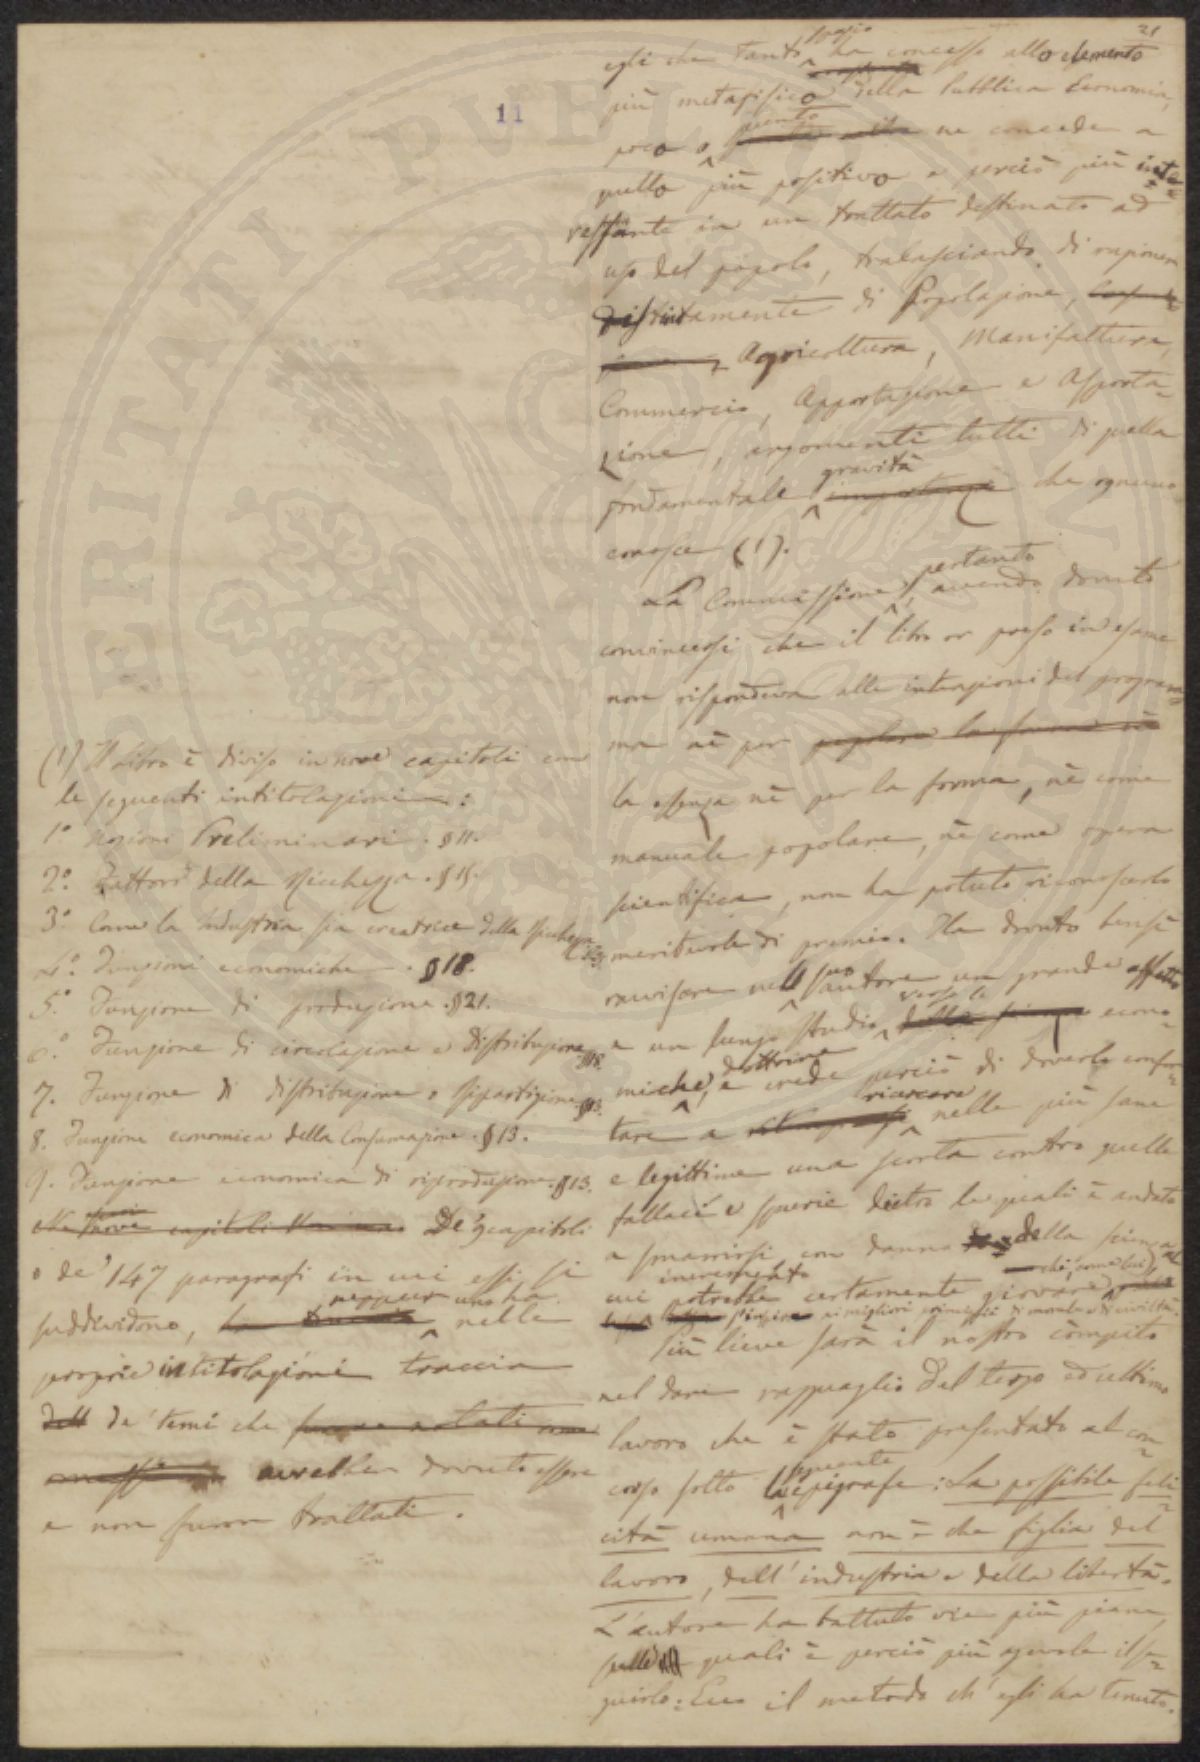 21
11
egli che tanto spazio ha concesso allo elemento
più metafisico della Pubblica Economia,
poco o niente ne concede a
quello più positivo e perciò più inte=
ressante in un trattato destinato ad
uso del popolo, tralasciando di ragionare
distintamente di Popolazione,
Agricoltura, Manifatture,
Commercio, Apportazione e Asporta=
zione, argomenti tutti di quella
fondamentale gravità importanza che ognuno
conosce (1).
La Commissione pertanto, avendo dovuto
convincersi che il libro or preso in esame
non rispondeva alle intenzioni del program=
ma nè per
la essenza nè per la forma, nè come
manuale popolare, nè come opera
scientifica, non ha potuto riconoscerlo
meritevole di premio. Ha dovuto bensì
ravvisare nell suo autore un grande affetto
e un lungo studio verso le della scienza econo=
miche dottrine, e crede perciò di doverlo confor=
tare a ricercare nelle più sane
e legittime una scorta contro quelle
fallaci e spurie dietro le quali è andato
a smarrirsi con danno della scienza al
cui incremento potrebbe certamente giovare chi, come lui,
ai migliori principii di morale e di civiltà.
Più lieve sarà il nostro còmpito
nel dare ragguaglio del terzo ed ultimo
lavoro che è stato presentato al con=
corso sotto la seguente epigrafe: La possibile feli=
cità umana non è che figlia del
lavoro, dell'industria e della libertà.
L'autore ha battuto vie più piane,
sulle quali è perciò più agevole il se=
guirlo. Ecco il metodo ch'egli ha tenuto.
(1) Il libro è diviso in nove capitoli con
le seguenti intitolazioni:
1.° Nozioni Preliminari. § 11.
2.° Fattori della Ricchezza. § 15.
3.° Come la Industria sia creatrice della Ricchezza
4.° Funzioni economiche. § 18.
5.° Funzione di produzione. § 21.
6.° Funzione di circolazione e Distribuzione § 18.
7. Funzione di distribuzione o Ripartizione § 13.
8. Funzione economica della Consumazione. § 13.
9. Funzione economica di riproduzione. § 13.
De' 9 capitoli
o de' 147 paragrafi in cui essi si
suddividono, neppur uno ha nelle
proprie intitolazioni traccia
de' temi che
avrebber dovuto essere
e non furon trattati.